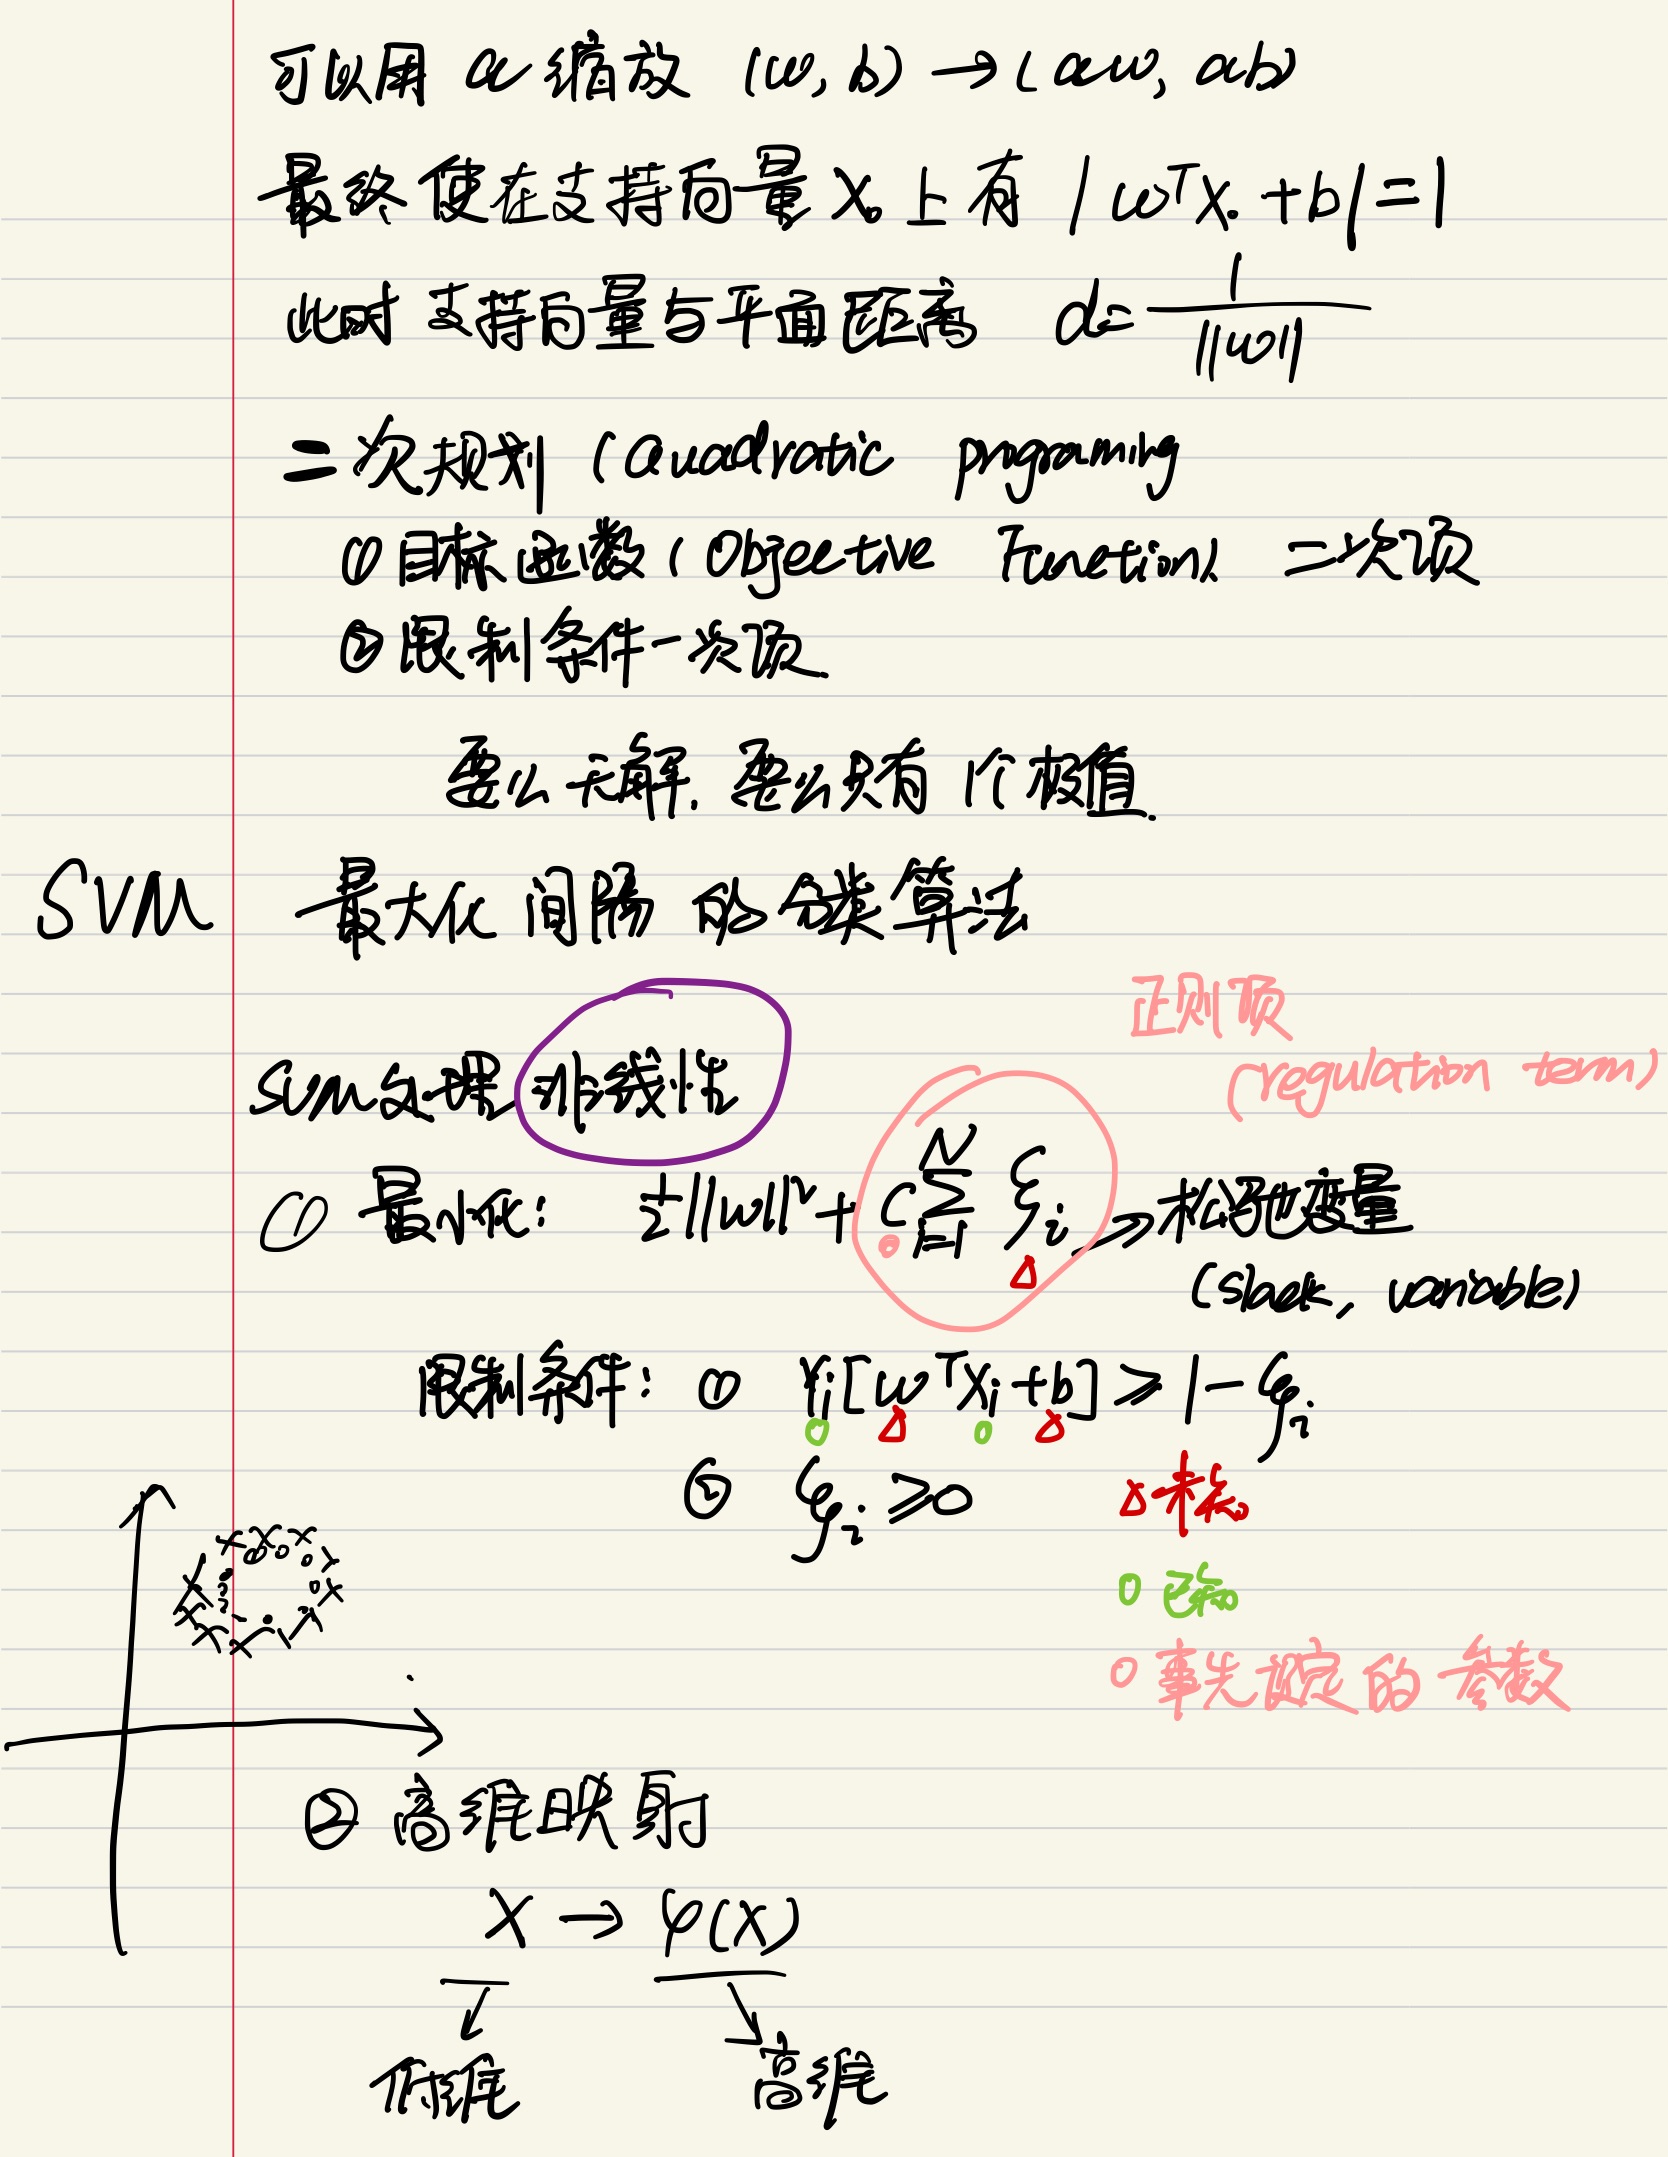 可以用 a 缩放 (w, b) → (aw, ab)
最终使在支持向量 X₀ 上有 |wᵀX₀ + b| = 1
此时 支持向量与平面距离 d = 1/||w||
二次规划 (Quadratic programing
① 目标函数 (Objective Function) 二次项
② 限制条件一次项
要么无解, 要么只有 1个极值.
SVM 最大化 间隔 的 分类算法
正则项
(regulation term)
SVM处理 非线性
① 最小化: ½||w||² + C∑ᵢ₌₁ᴺ ξᵢ → 松弛变量
(slack, variable)
限制条件: ① Yᵢ[wᵀXᵢ + b] ≥ 1 - ξᵢ
② ξᵢ ≥ 0
△ 未知
○ 已知
○ 事先设定的 参数
② 高维映射
X → φ(X)
低维 高维